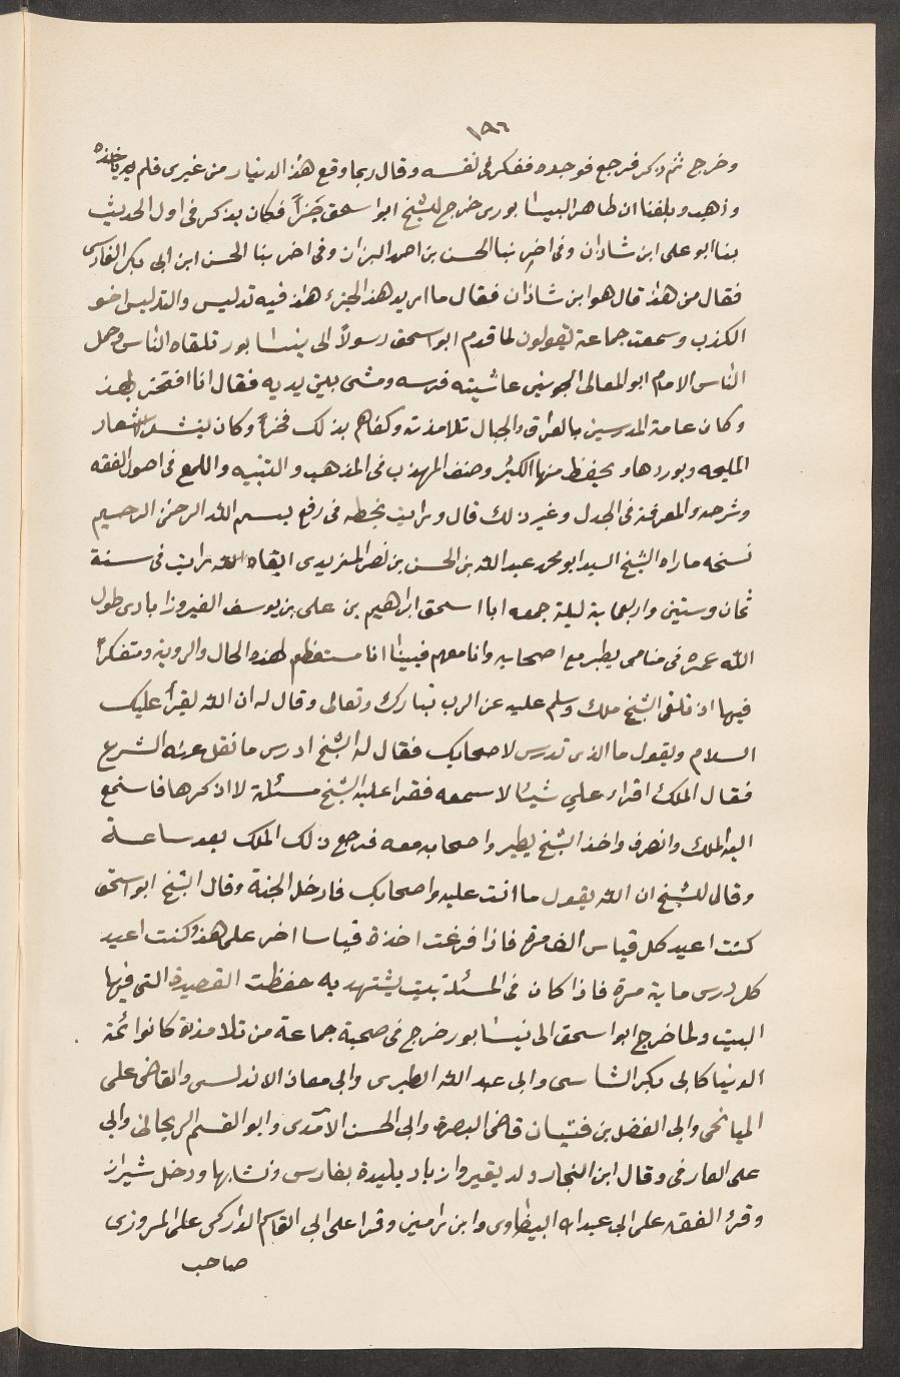 ١٩٦
وخرج ثم ذكر فرجع فوجده ففكر في نفسه وقال ربما وقع هذا الدينار من غيري فلم ياخذه
وذهب وبلغنا ان طاهر النيسابوري خرج للشيخ ابو اسحق جزأً فكان يذكر في اول الحديث
بنا ابو علي ابن شاذان وفي اخر بنا الحسن بن احمد البزاز وفي اخر بنا الحسن ابن ابي بكر الفارسي
فقال من هذا قال هو ابن شاذان فقال ما اريد هذا الجزء هذا فيه تدليس والتدليس اخو
الكذب وسمعت جماعة يقولون لما قدم ابو اسحق رسولاً الى نيسابور تلقاه الناس وحمل
الناس الامام ابو المعالي الجويني غاشيته فرسه ومشى بين يديه فقال انا افتخر بهذا
وكان عامة المدرسين بالعراق والجبال تلامذته وكفاهم بذلك فخراً وكان ينشد الاشعار
المليحه ويوردها ويحفظ منها الكثير وصنف المهذب في المذهب والتنبيه واللمع في اصول الفقه
وشرحه والمعرفة في الجدل وغير ذلك قال ورايت بخطه في رقع بسم الله الرحمن الرحيم
نسخه ما راه الشيخ السيد ابو محمد عبد الله بن الحسن بن نصر المزيدي ابقاه الله رايت في سنة
ثمان وستين واربعماية ليلة جمعه ابا اسحق ابراهيم بن علي بن يوسف الفيروزابادي طول
الله عمره في منامي يطير مع اصحابه وانا معهم فبينا انا مستعظم لهذه الحال والروية ومتفكراً
فيها اذ تلقى الشيخ ملك وسلم عليه عن الرب تبارك وتعالى وقال له ان الله يقرأ عليك
السلام ويقول ما الذي تدرس لاصحابك فقال له الشيخ ادرس ما نقل عنه الشرع
فقال الملك اقراء علي شيئا لاسمعه فقرا عليه الشيخ مسئلة لا اذكرها فاستمع
اليه الملك وانصرف واخذ الشيخ يطير واصحابه معه فرجع ذلك الملك بعد ساعة
وقال للشيخ ان الله يقول ما انت عليه واصحابك فادخل الجنة وقال الشيخ ابو اسحق
كنت اعيد كل قياس الف مرة فاذا فرغت اخذة قياسا اخر على هذا وكنت اعيد
كل درس ماية مرة فاذا كان في المسئلة بيت يشتهد به حفظت القصيدة التي فيها
البيت ولما خرج ابو اسحق الى نيسابور خرج في صحبة جماعة من تلامذته كانوا ائمة
الدنيا كابي بكر الشاسي وابي عبد الله الطبري وابي معاذ الاندلسي والقاضي علي
الميانجي وابي الفضل بن فتيان قاضي البصرة وابي الحسن الآمدي وابو القسم الزنجاني وابي
علي الفارقي وقال ابن النجار ولد بفيروازباد بليدة بفارس ونشا بها ودخل شيراز
وقرأ الفقه على ابي عبد الله البيضاوي وابن رامين وقرا على ابي القاسم الداركي على المروزي
صاحب